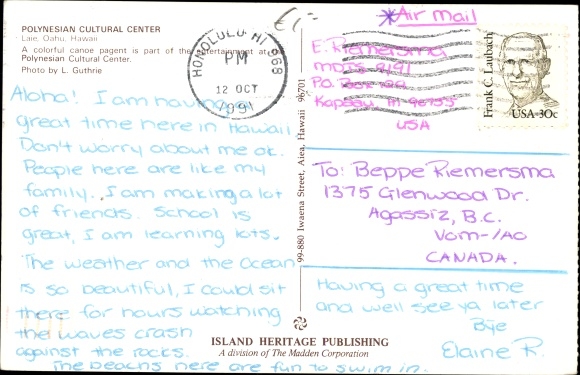 POLYNESIAN CULTURAL CENTER
Laie, Oahu, Hawaii
A colorful canoe pagent is part of the entertainment at
Polynesian Cultural Center.
Photo by L. Guthrie
HONOLULU HI 968
PM
12 OCT
1991
*Air mail
E. Riemersma
P.O. Box
HI 96755
USA
Frank C. Laubach
USA 30c
Aloha! I am having
great time here in Hawaii
Don't worry about me ok.
People here are like my
family. I am making a lot
of friends. School is
great, I am learning lots.
The weather and the Ocean
is so beautiful, I could sit
there for hours watching
the waves crash
against the rocks.
The beachs here are fun to swim in.
99-880 Iwaena Street, Aiea, Hawaii 96701
To: Beppe Riemersma
1375 Glenwood Dr.
Agassiz, B.C.
Vom-1A0
CANADA.
Having a great time
and well see ya later
Bye
Elaine R.
ISLAND HERITAGE PUBLISHING
A division of The Madden Corporation